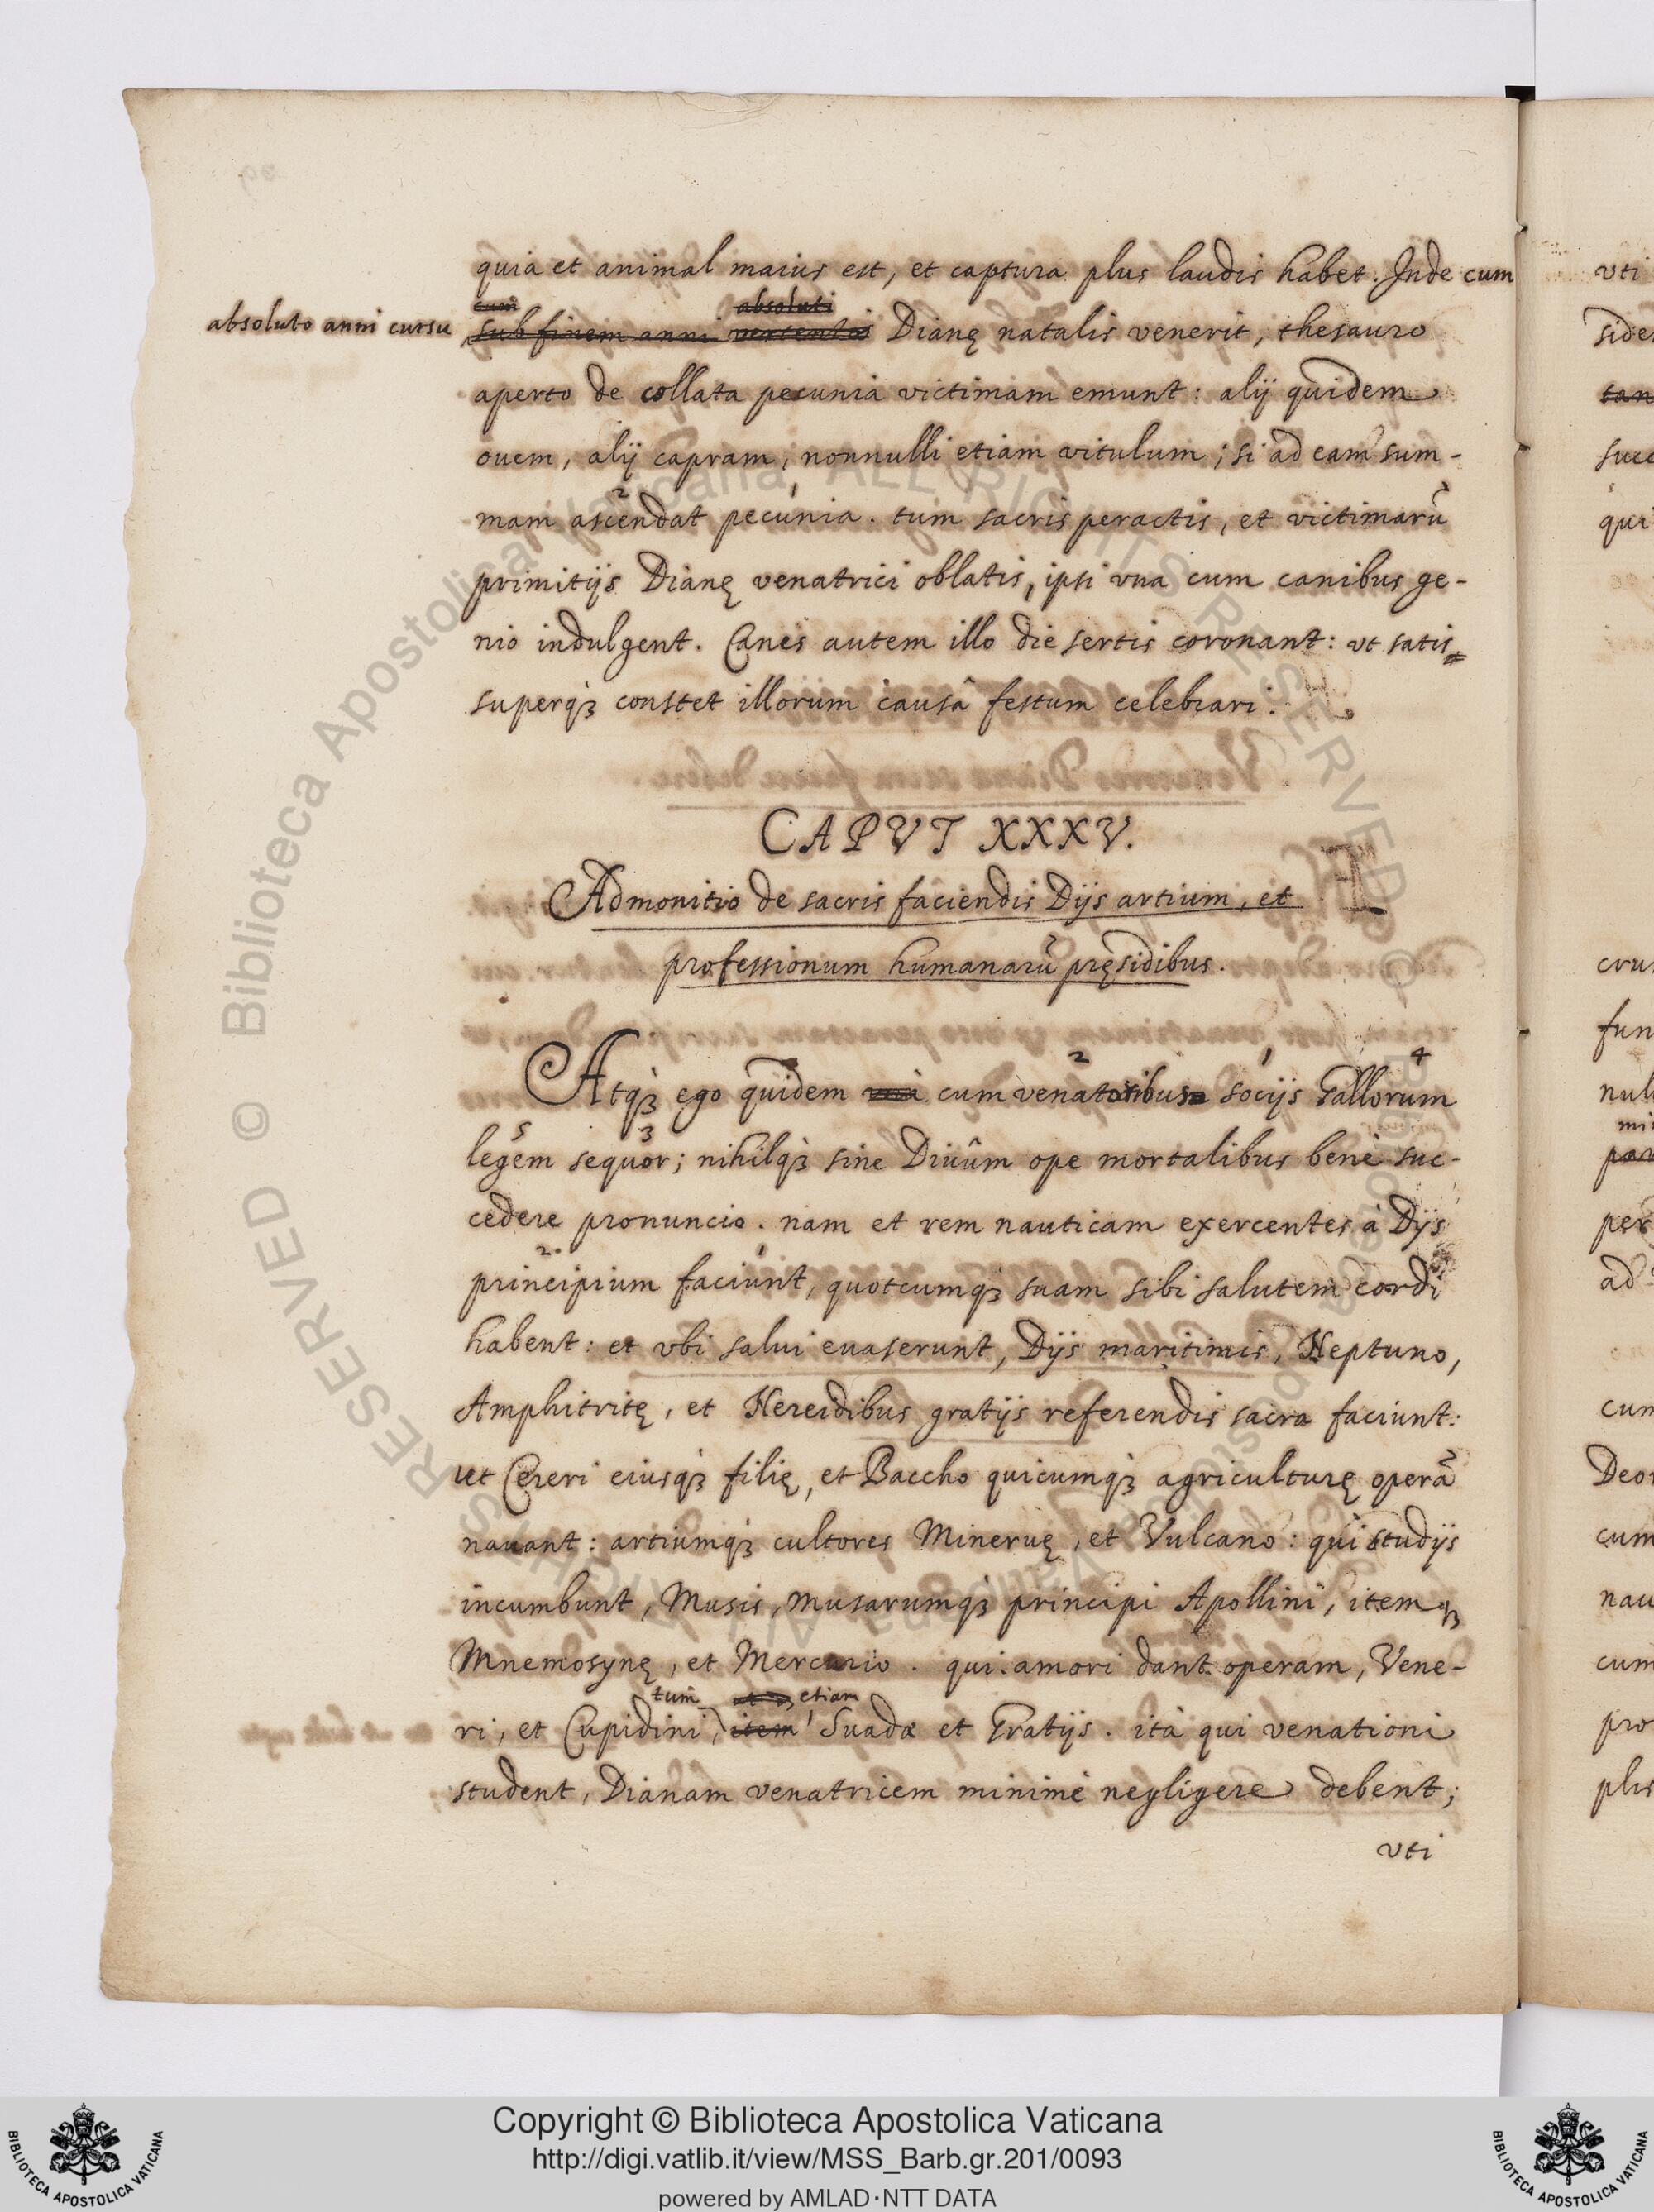 quia et animal maius est, et captura plus laudis habet. Inde cum
cum absoluti
absoluto anni cursu sub finem anni vertentis Dianę natalis venerit, thesauro
aperto de collata pecunia victimam emunt: alij quidem
ouem, alij capram, nonnulli etiam vitulum; si ad eam sum-
2 1
mam ascendat pecunia. tum sacris peractis, et victimarũ
primitijs Dianę venatrici oblatis, ipsi vna cum canibus ge-
nio indulgent. Canes autem illo die sertis coronant: vt satis
superq꜒ constet illorum causâ festum celebrari.
CAPVT XXXV.
Admonitio de sacris faciendis Dijs artium, et
professionum humanarũ pręsidibus.
2 1 4
Atq꜒ ego quidem cum venatoribus socijs Gallorum
5 3
legem sequor; nihilq꜒ sine Diuûm ope mortalibus benè suc-
cedere pronuncio. nam et rem nauticam exercentes à Dijs
2. 1
principium faciunt, quotcumq꜒ suam sibi salutem cordi
habent: et vbi salui euaserunt, Dijs maritimis, Neptuno,
Amphitritę, et Nereidibus gratijs referendis sacra faciunt:
vt Cereri eiusq꜒ filię, et Baccho quicumq꜒ agriculturę operã
nauant: artiumq꜒ cultores Mineruę, et Vulcano: qui studijs
incumbunt, Musis, musarumq꜒ principi Apollini, itemq꜒
Mnemosynę, et Mercurio. qui amori dant operam, Vene-
tum etiam
ri, et Cupidini, item Suadæ et Gratijs. ità qui venationi
student, Dianam venatricem minimè negligere debent;
vti
vti
cum
Deor
cum
nau
cum
pro
Copyright © Biblioteca Apostolica Vaticana
http://digi.vatlib.it/view/MSS_Barb.gr.201/0093
powered by AMLAD·NTT DATA
BIBLIOTECA APOSTOLICA VATICANA
BIBLIOTECA APOSTOLICA VATICANA